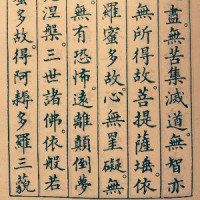 盡無苦集滅道無智亦
無所得故菩提薩埵依
羅蜜多故心無罣礙無
無有恐怖遠離顛倒夢
涅槃三世諸佛依般若
蜜多故得阿耨多羅三藐